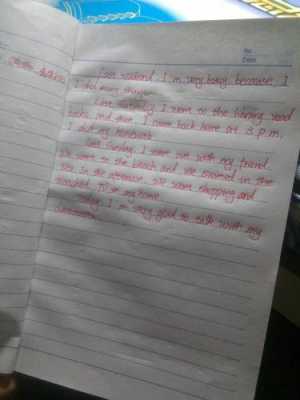 No.
Date.
Last weekend, I'm very busy, because I
did many things.
Last Saturday, I went to the library read
books, and then I came back home at 3 p.m.
I did my homework.
Last Sunday, I went out with my friend.
We went to the beach and we swimmed in the
sea. In the afternoon, we went shopping and
I very glad to talk with my